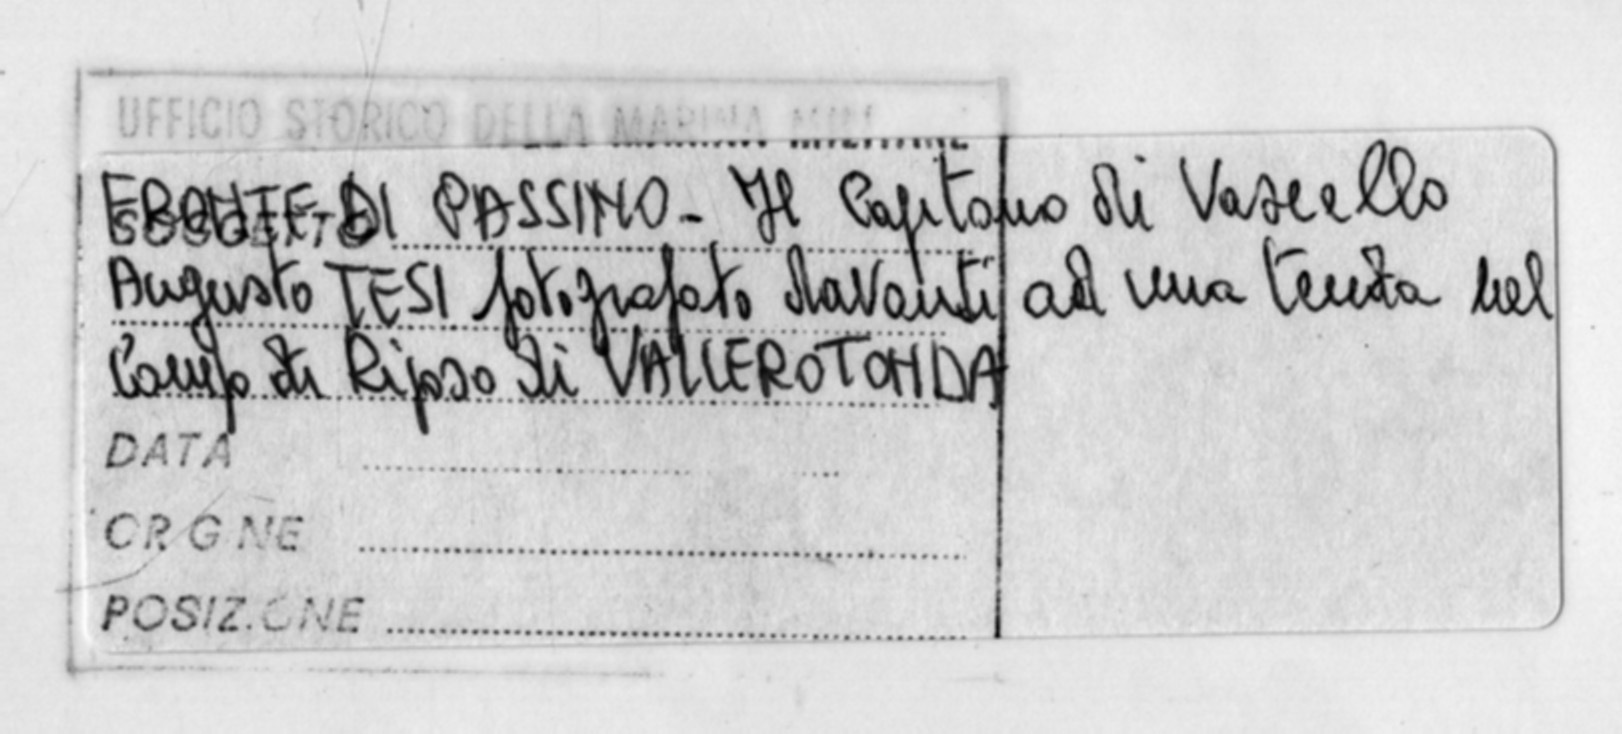 UFFICIO STORICO DELLA MARINA MILITARE
SOGGETTO
FRONTE DI PASSINO - Il Capitano di Vascello
Augusto TESI fotografato davanti ad una tenda nel
Campo di Riposo di VALLEROTONDA
DATA
ORIGINE
POSIZIONE